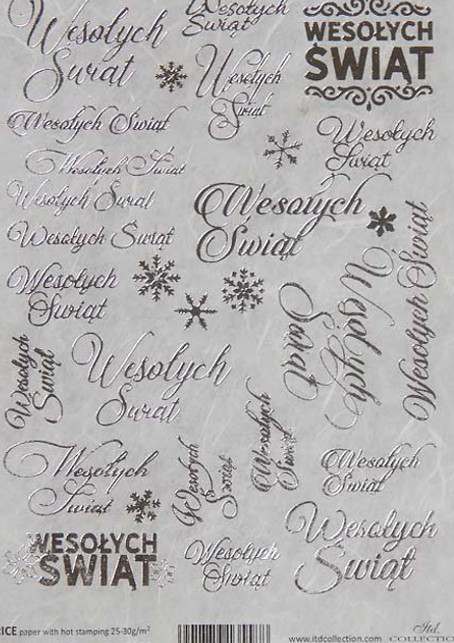 Wesołych
Świąt
Wesołych
Świąt
WESOŁYCH
ŚWIĄT
Wesołych
Świąt
Wesołych Świąt
Wesołych
Świąt
Wesołych Świąt
Wesołych Świąt
Wesołych
Świąt
Wesołych Świąt
Wesołych
Świąt
Wesołych
Świąt
Wesołych Świąt
Wesołych
Świąt
Wesołych
Świąt
Wesołych
Świąt
Wesołych
Świąt
Wesołych
Świąt
Wesołych
Świąt
Wesołych
Świąt
Wesołych
Świąt
WESOŁYCH
ŚWIĄT
Wesołych
Świąt
RICE paper with hot stamping 25-30g/m²
www.itdcollection.com
itd.
COLLECTION